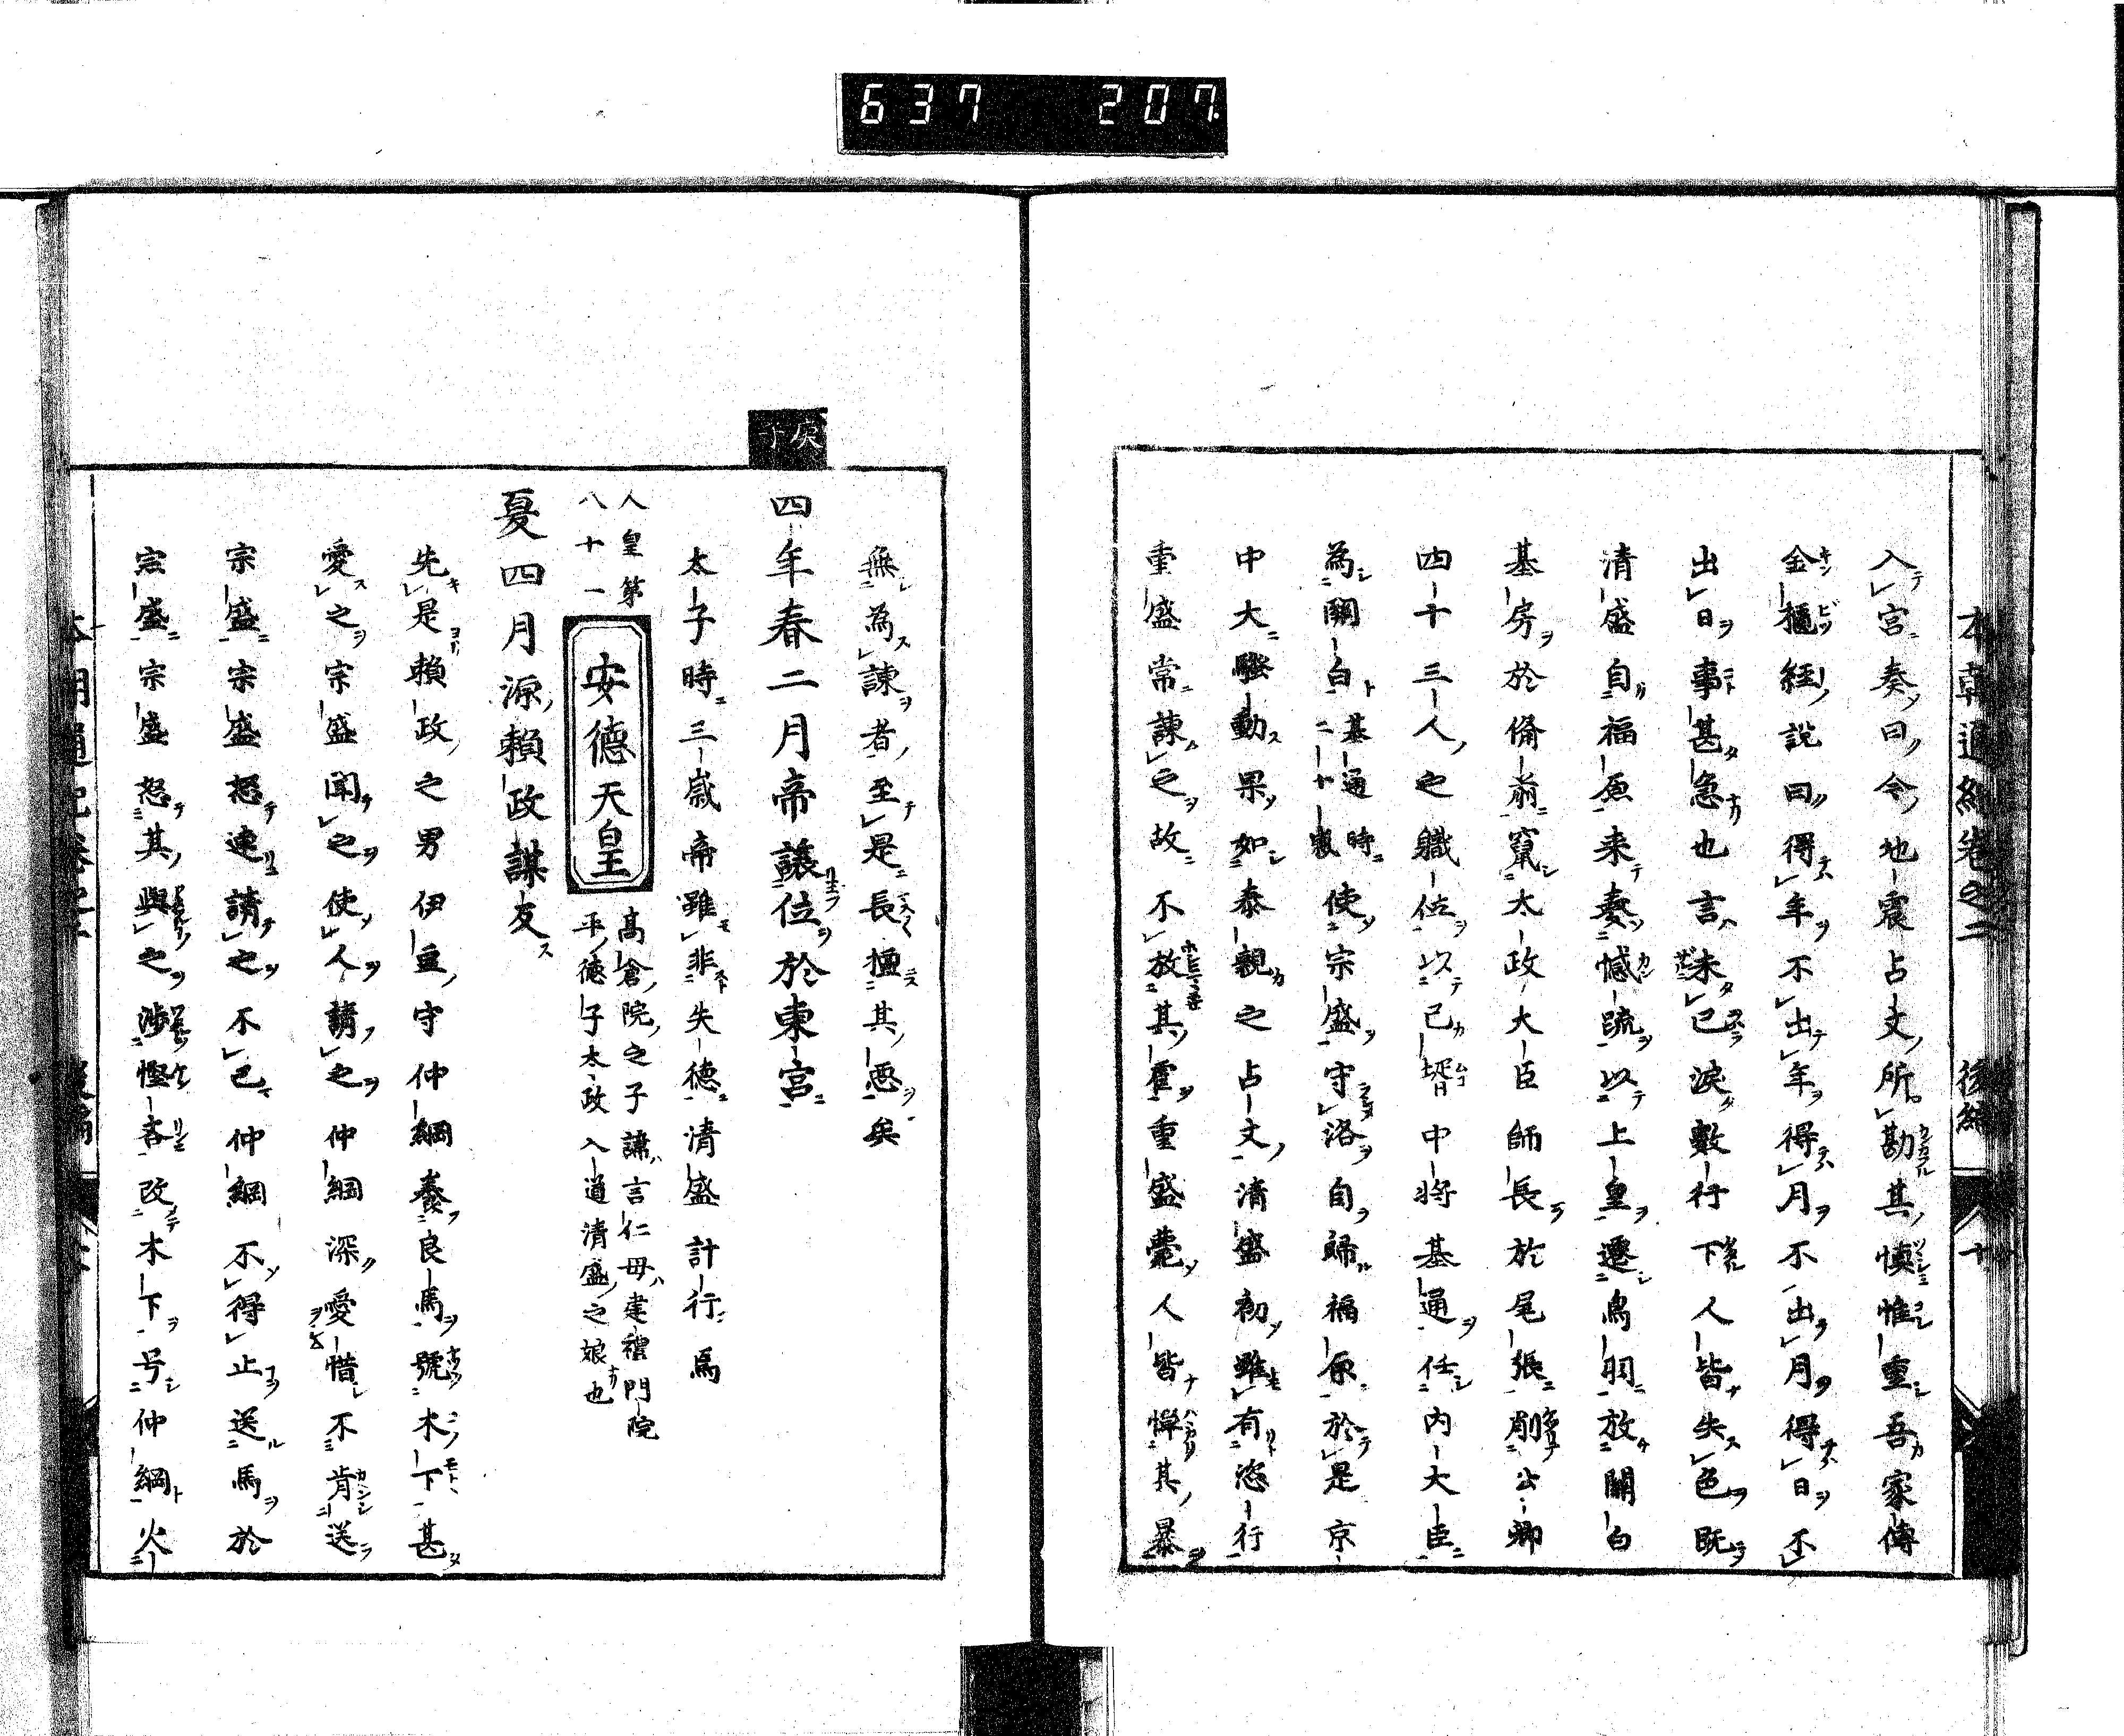 637 207
入宮奏曰今地震占文所勘其慎惟重吾家傳
金樻経説曰得年不出年得月不出月得日不
出日事甚急也言未已涙數行下人皆失色既
清盛自福原来奏憾疏以上皇遷鳥羽放關白
基房於備前竄太政大臣師長於尾張削公卿
四十三人之職位以己壻中将基通任内大臣
為關白基通時二十歳使宗盛守洛自歸福原於是京
中大騒動果如泰親之占文清盛初雖有恣行
重盛常諫之故不放其霍重盛薨人皆憚其暴
後編 十
無為諫者至是長擅其悪矣
庚子
四年春二月帝譲位於東宮
太子時三歳帝雖非失徳清盛計行焉
人皇第八十一
安徳天皇
高倉院之子諱言仁母建禮門院
平徳子太政入道清盛之娘也
夏四月源頼政謀反
先是頼政之男伊豆守仲綱養良馬號木下甚
愛之宗盛聞之使人請之仲綱深愛惜不肯送
宗盛宗盛怒連請之不已仲綱不得止送馬於
宗盛宗盛怒其與之渉慳吝改木下号仲綱火